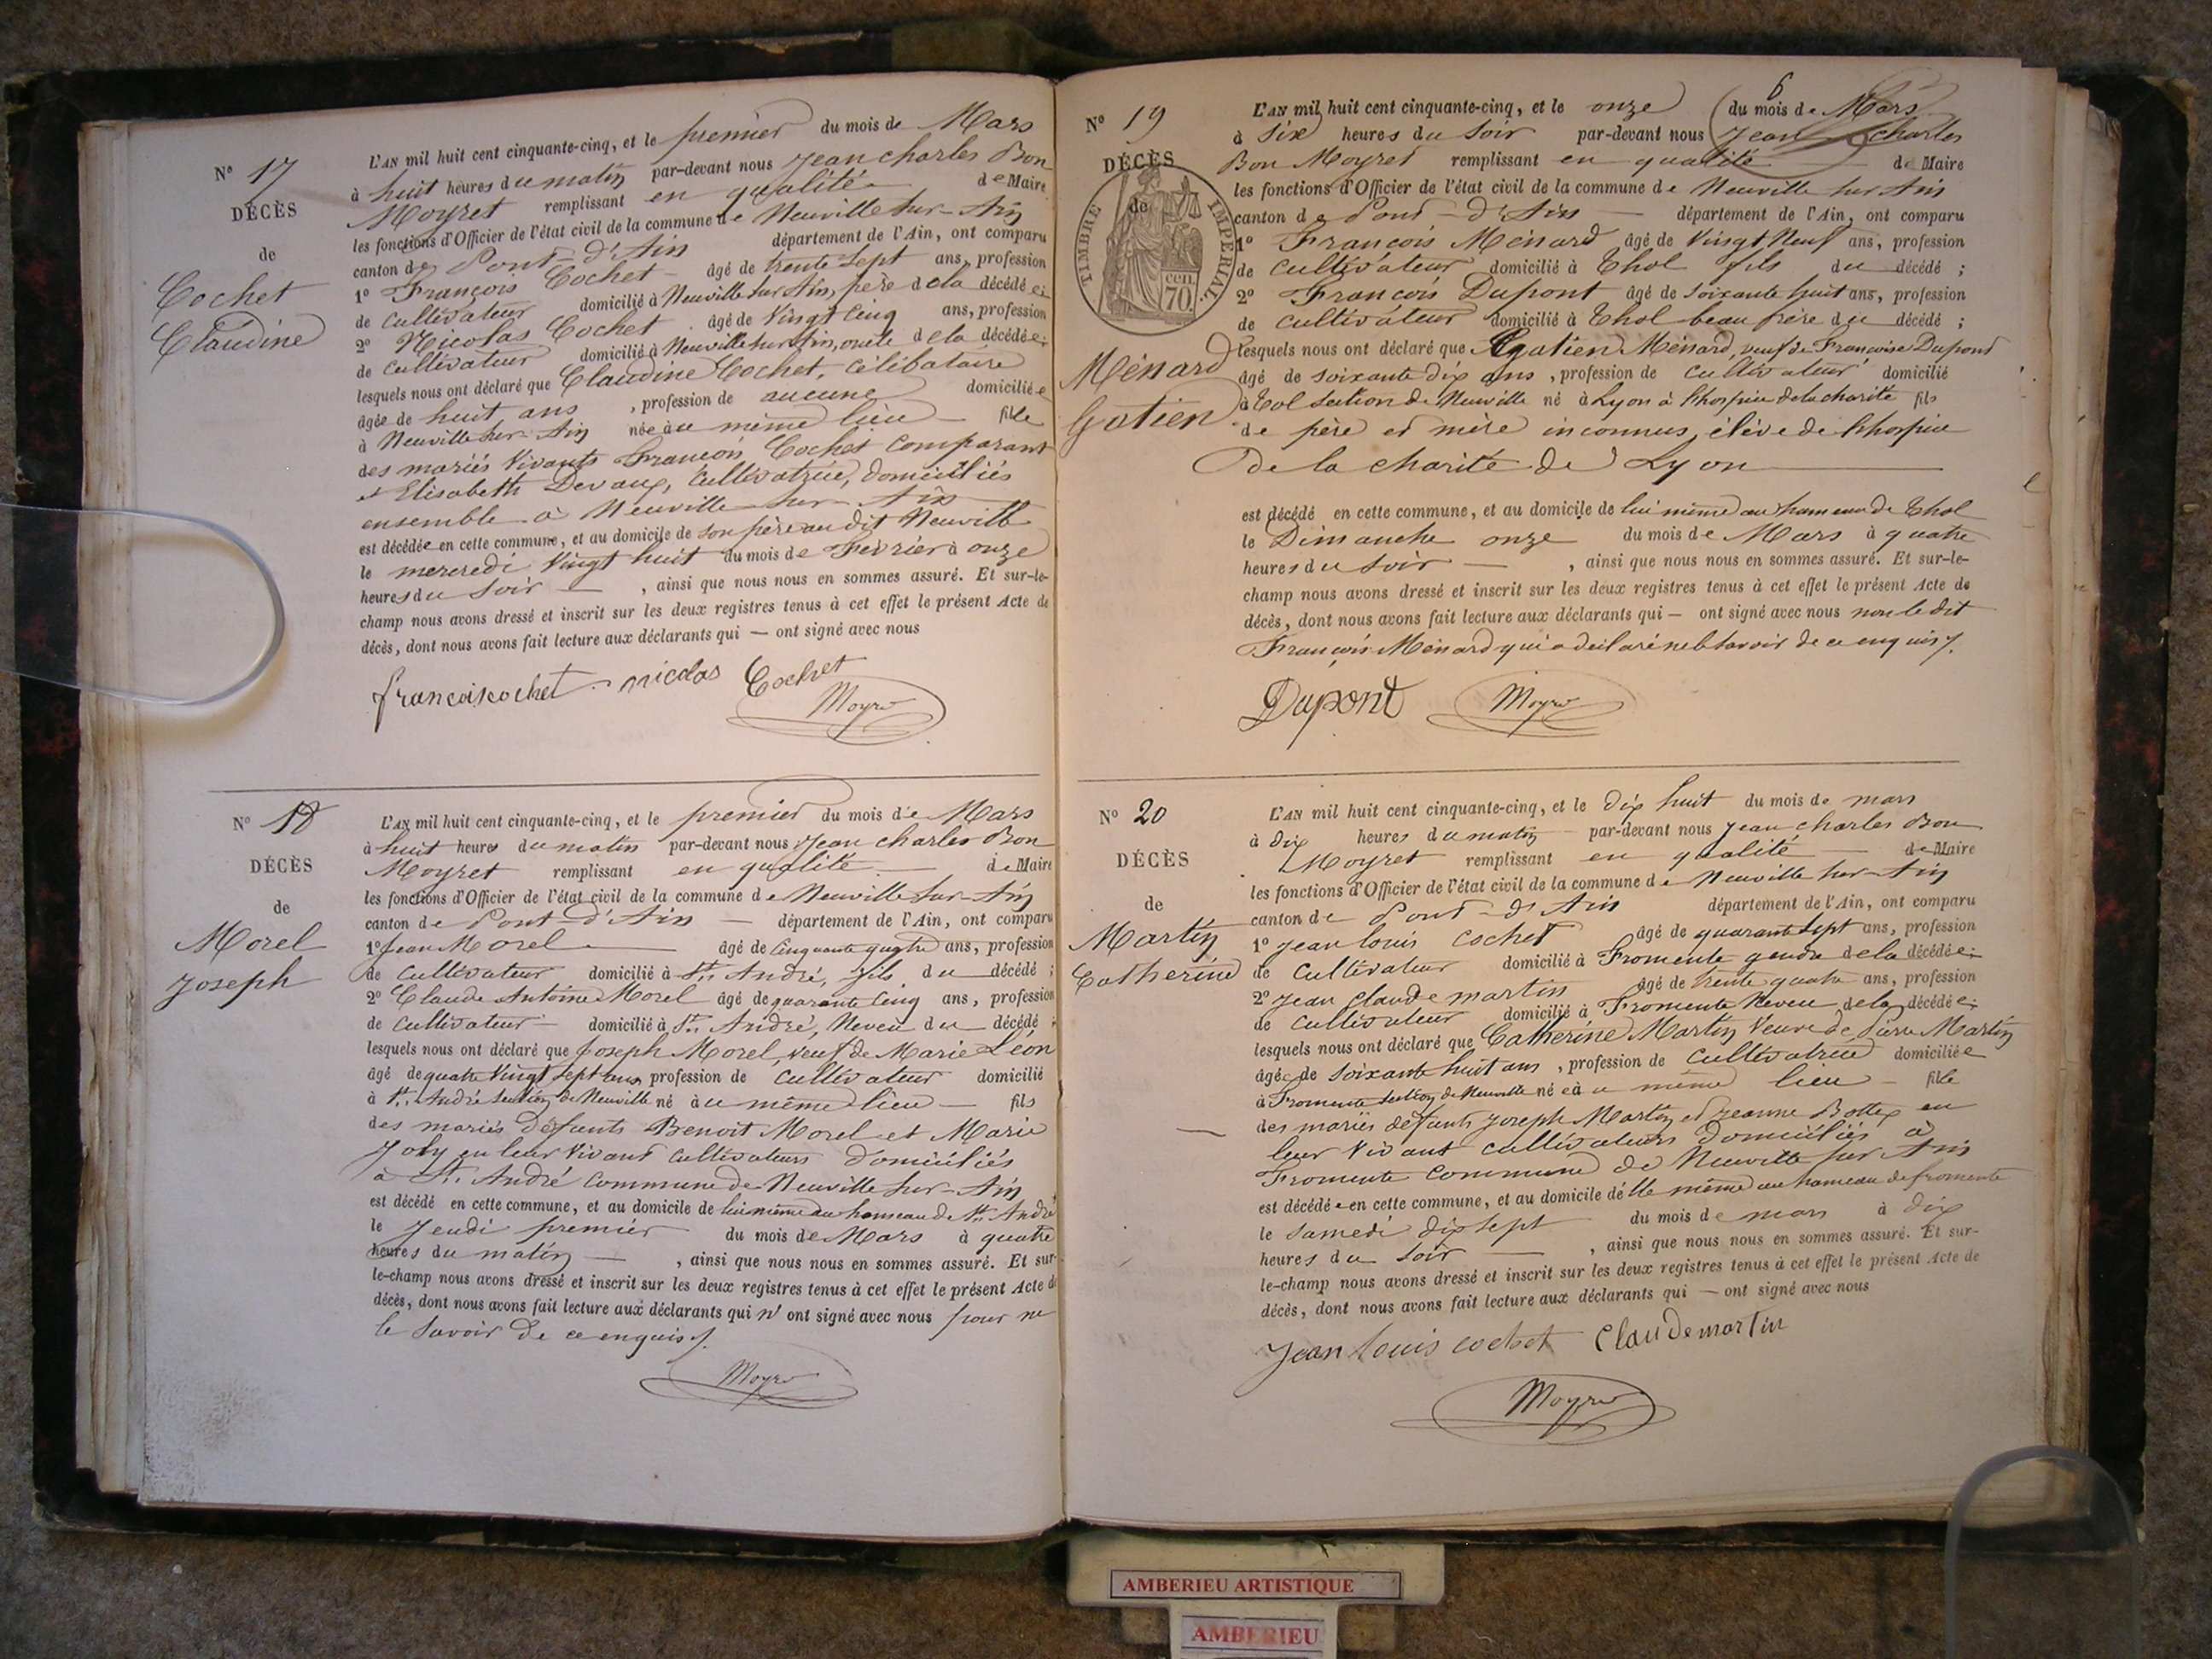 N° 17
DÉCÈS
de
Cochet
Claudine
L'AN mil huit cent cinquante-cinq, et le premier du mois de Mars
à huit heures du matin par-devant nous Jean charles Bon
Moyret remplissant en qualité de Maire
les fonctions d'Officier de l'état civil de la commune de Neuville sur-Ain
canton de Pont-d'Ain département de l'Ain, ont comparu
1° François Cochet âgé de trente sept ans, profession
de Cultivateur domicilié à Neuville sur Ain, père de la décédée;
2° Nicolas Cochet âgé de Vingt Cinq ans, profession
de Cultivateur domicilié à Neuville sur Ain, oncle de la décédée;
lesquels nous ont déclaré que Claudine Cochet, célibataire
âgée de huit ans , profession de aucune domiciliée
à Neuville sur-Ain née au même lieu fille
des mariés Vivants François Cochet Comparant
et Elisabeth Devaux, Cultivatrice, domiciliés
ensemble à Neuville sur-Ain
est décédée en cette commune, et au domicile de son père au dit Neuville
le mercredi Vingt huit du mois de Février à onze
heures du Soir , ainsi que nous nous en sommes assuré. Et sur-le-
champ nous avons dressé et inscrit sur les deux registres tenus à cet effet le présent Acte de
décès, dont nous avons fait lecture aux déclarants qui — ont signé avec nous
francoiscochet nicolas Cochet
Moyret
N° 18
DÉCÈS
de
Morel
Joseph
L'AN mil huit cent cinquante-cinq, et le premier du mois de Mars
à huit heures du matin par-devant nous Jean charles Bon
Moyret remplissant en qualité de Maire
les fonctions d'Officier de l'état civil de la commune de Neuville sur-Ain
canton de Pont d'Ain — département de l'Ain, ont comparu
1° Jean Morel âgé de Cinquante quatre ans, profession
de Cultivateur domicilié à St. André, fils du décédé;
2° Claude Antoine Morel âgé de quarante Cinq ans, profession
de Cultivateur domicilié à St. André, Neveu du décédé;
lesquels nous ont déclaré que Joseph Morel, Veuf de Marie Léon
âgé de quatre Vingt Sept ans, profession de Cultivateur domicilié
à St. André Section de Neuville né au même lieu — fils
des mariés défunts Benoit Morel et Marie
Joly en leur Vivant Cultivateurs domiciliés
à St. André Commune de Neuville sur-Ain
est décédé en cette commune, et au domicile de lui même au hameau de St. André
le Jeudi premier du mois de Mars à quatre
heures du matin , ainsi que nous nous en sommes assuré. Et sur-
le-champ nous avons dressé et inscrit sur les deux registres tenus à cet effet le présent Acte de
décès, dont nous avons fait lecture aux déclarants qui n' ont signé avec nous pour ne
le Savoir de ce enquis
Moyret
6
N° 19
DÉCÈS
de
TIMBRE IMPERIAL
cen.
70.
Ménard
Gatien
L'AN mil huit cent cinquante-cinq, et le onze du mois de Mars
à Six heures du Soir par-devant nous Jean charles
Bon Moyret remplissant en qualité de Maire
les fonctions d'Officier de l'état civil de la commune de Neuville sur Ain
canton de Pont-d'Ain — département de l'Ain, ont comparu
1° François Ménard âgé de Vingt Neuf ans, profession
de Cultivateur domicilié à Thol fils du décédé;
2° François Dupont âgé de Soixante huit ans, profession
de Cultivateur domicilié à Thol beau frère du décédé;
lesquels nous ont déclaré que Gatien Ménard, veuf de Françoise Dupont
âgé de soixante dix ans, profession de Cultivateur domicilié
à Tol section de Neuville né à Lyon à l'hospice de la charité fils
de père et mère inconnus, élève de l'hospice
de la charité de Lyon
est décédé en cette commune, et au domicile de lui même au hameau de Thol
le Dimanche onze du mois de Mars à quatre
heures du Soir — , ainsi que nous nous en sommes assuré. Et sur-le-
champ nous avons dressé et inscrit sur les deux registres tenus à cet effet le présent Acte de
décès, dont nous avons fait lecture aux déclarants qui — ont signé avec nous non le dit
François Ménard qui a déclaré ne le savoir de ce enquis
Dupont Moyret
N° 20
DÉCÈS
de
Martin
Catherine
L'AN mil huit cent cinquante-cinq, et le dix huit du mois de mars
à dix heures du matin par-devant nous Jean charles Bon
Moyret remplissant en qualité — de Maire
les fonctions d'Officier de l'état civil de la commune de Neuville sur-Ain
canton de Pont-d'Ain département de l'Ain, ont comparu
1° Jean louis cochet âgé de quarante sept ans, profession
de Cultivateur domicilié à Fromente gendre de la décédée;
2° Jean Claude martin âgé de trente quatre ans, profession
de Cultivateur domicilié à Fromente Neveu de la décédée;
lesquels nous ont déclaré que Catherine Martin Veuve de Pierre Martin
âgée de soixante huit ans, profession de Cultivatrice domiciliée
à Fromente Section de Neuville née au même lieu — fille
des mariés défunts Joseph Martin et Jeanne Bottex en
leur Vivant cultivateurs domiciliés à
Fromente Commune de Neuville sur Ain
est décédée en cette commune, et au domicile d'elle même au hameau de fromente
le Samedi dix sept du mois de mars à dix
heures du Soir — , ainsi que nous nous en sommes assuré. Et sur-
le-champ nous avons dressé et inscrit sur les deux registres tenus à cet effet le présent Acte de
décès, dont nous avons fait lecture aux déclarants qui — ont signé avec nous
Jean louis cochet Claudemartin
Moyret
AMBERIEU ARTISTIQUE
AMBERIEU